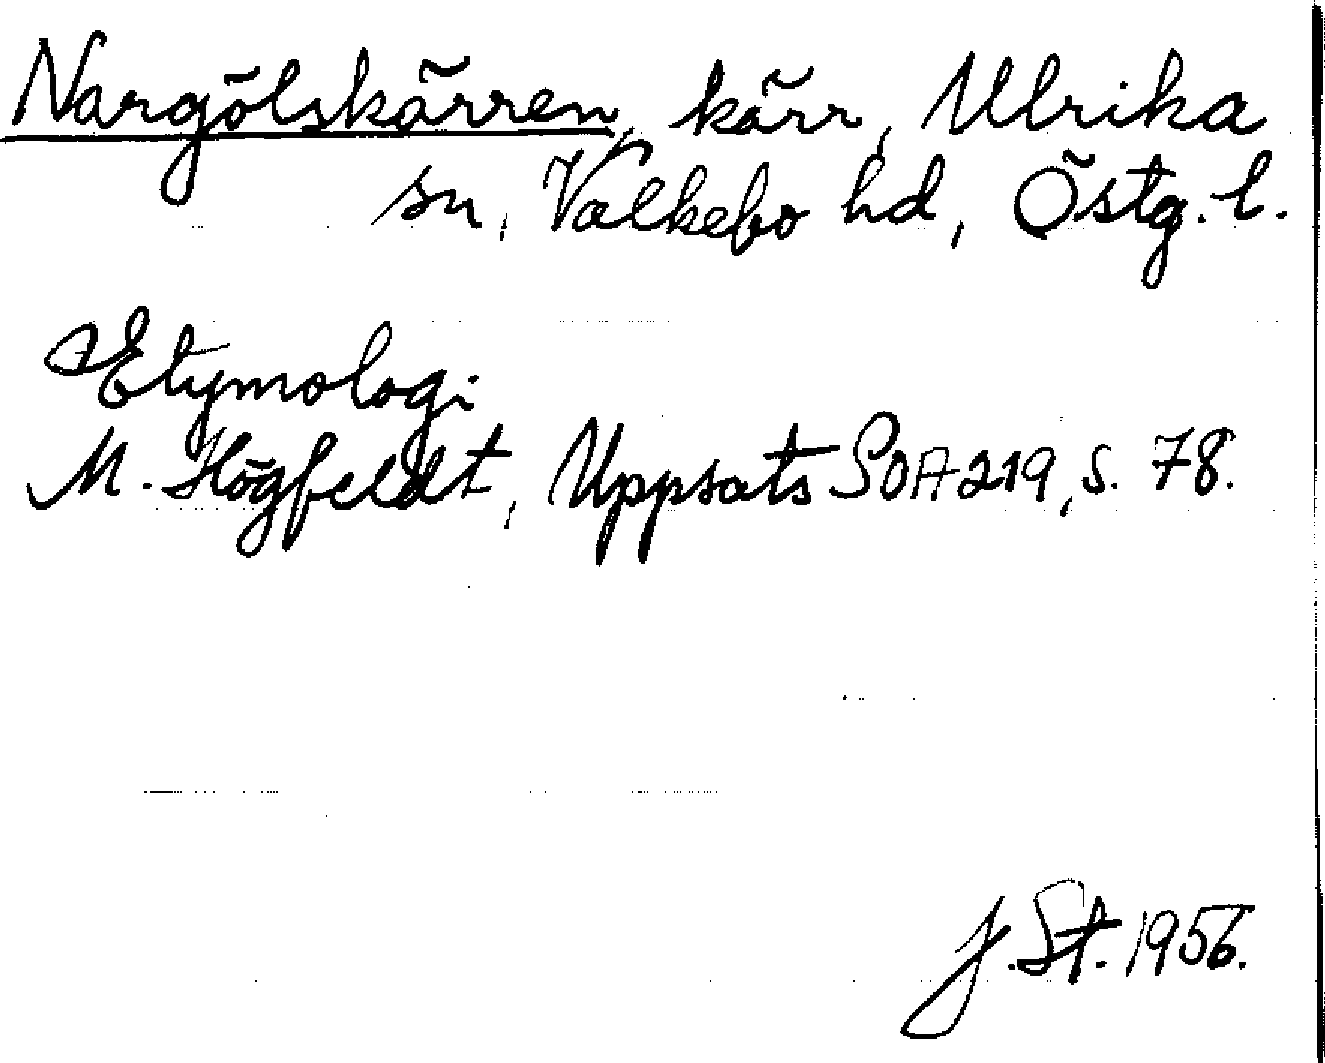 Nargölskärren, kärr, Ulrika
sn, Valkebo hd, Östg. l.
Etymologi
M. Högfeldt, Uppsats SOA 219, s. 78.
J. St. 1956.